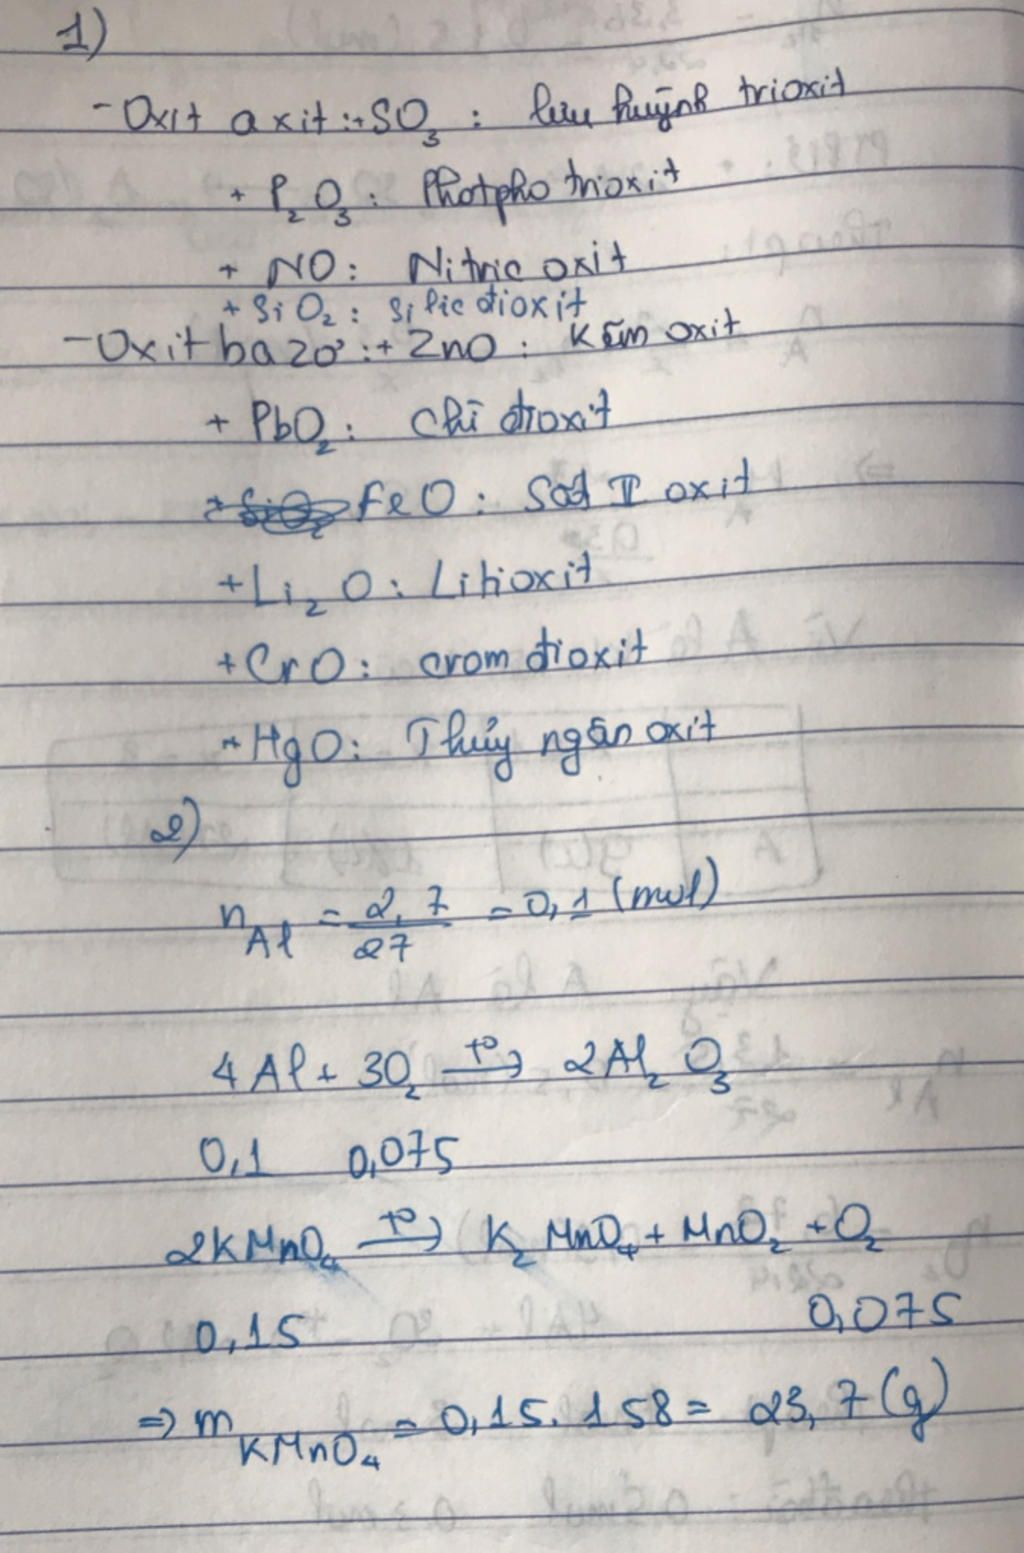 1)
- Oxit axit: + SO₃ : lưu huỳnh trioxit
+ P₂O₃ : Photpho trioxit
+ NO : Nitric oxit
+ SiO₂ : Silic đioxit
- Oxit bazơ : + ZnO : Kẽm oxit
+ PbO₂ : Chì đioxit
FeO : Sắt II oxit
+ Li₂O : Liti oxit
+ CrO : crom đioxit
+ HgO : Thủy ngân oxit
2)
n_Al = 2,7/27 = 0,1 (mol)
4Al + 3O₂ –t°→ 2Al₂O₃
0,1 0,075
2KMnO₄ –t°→ K₂MnO₄ + MnO₂ + O₂
0,15 0,075
=> m_KMnO₄ = 0,15.158 = 23,7 (g)